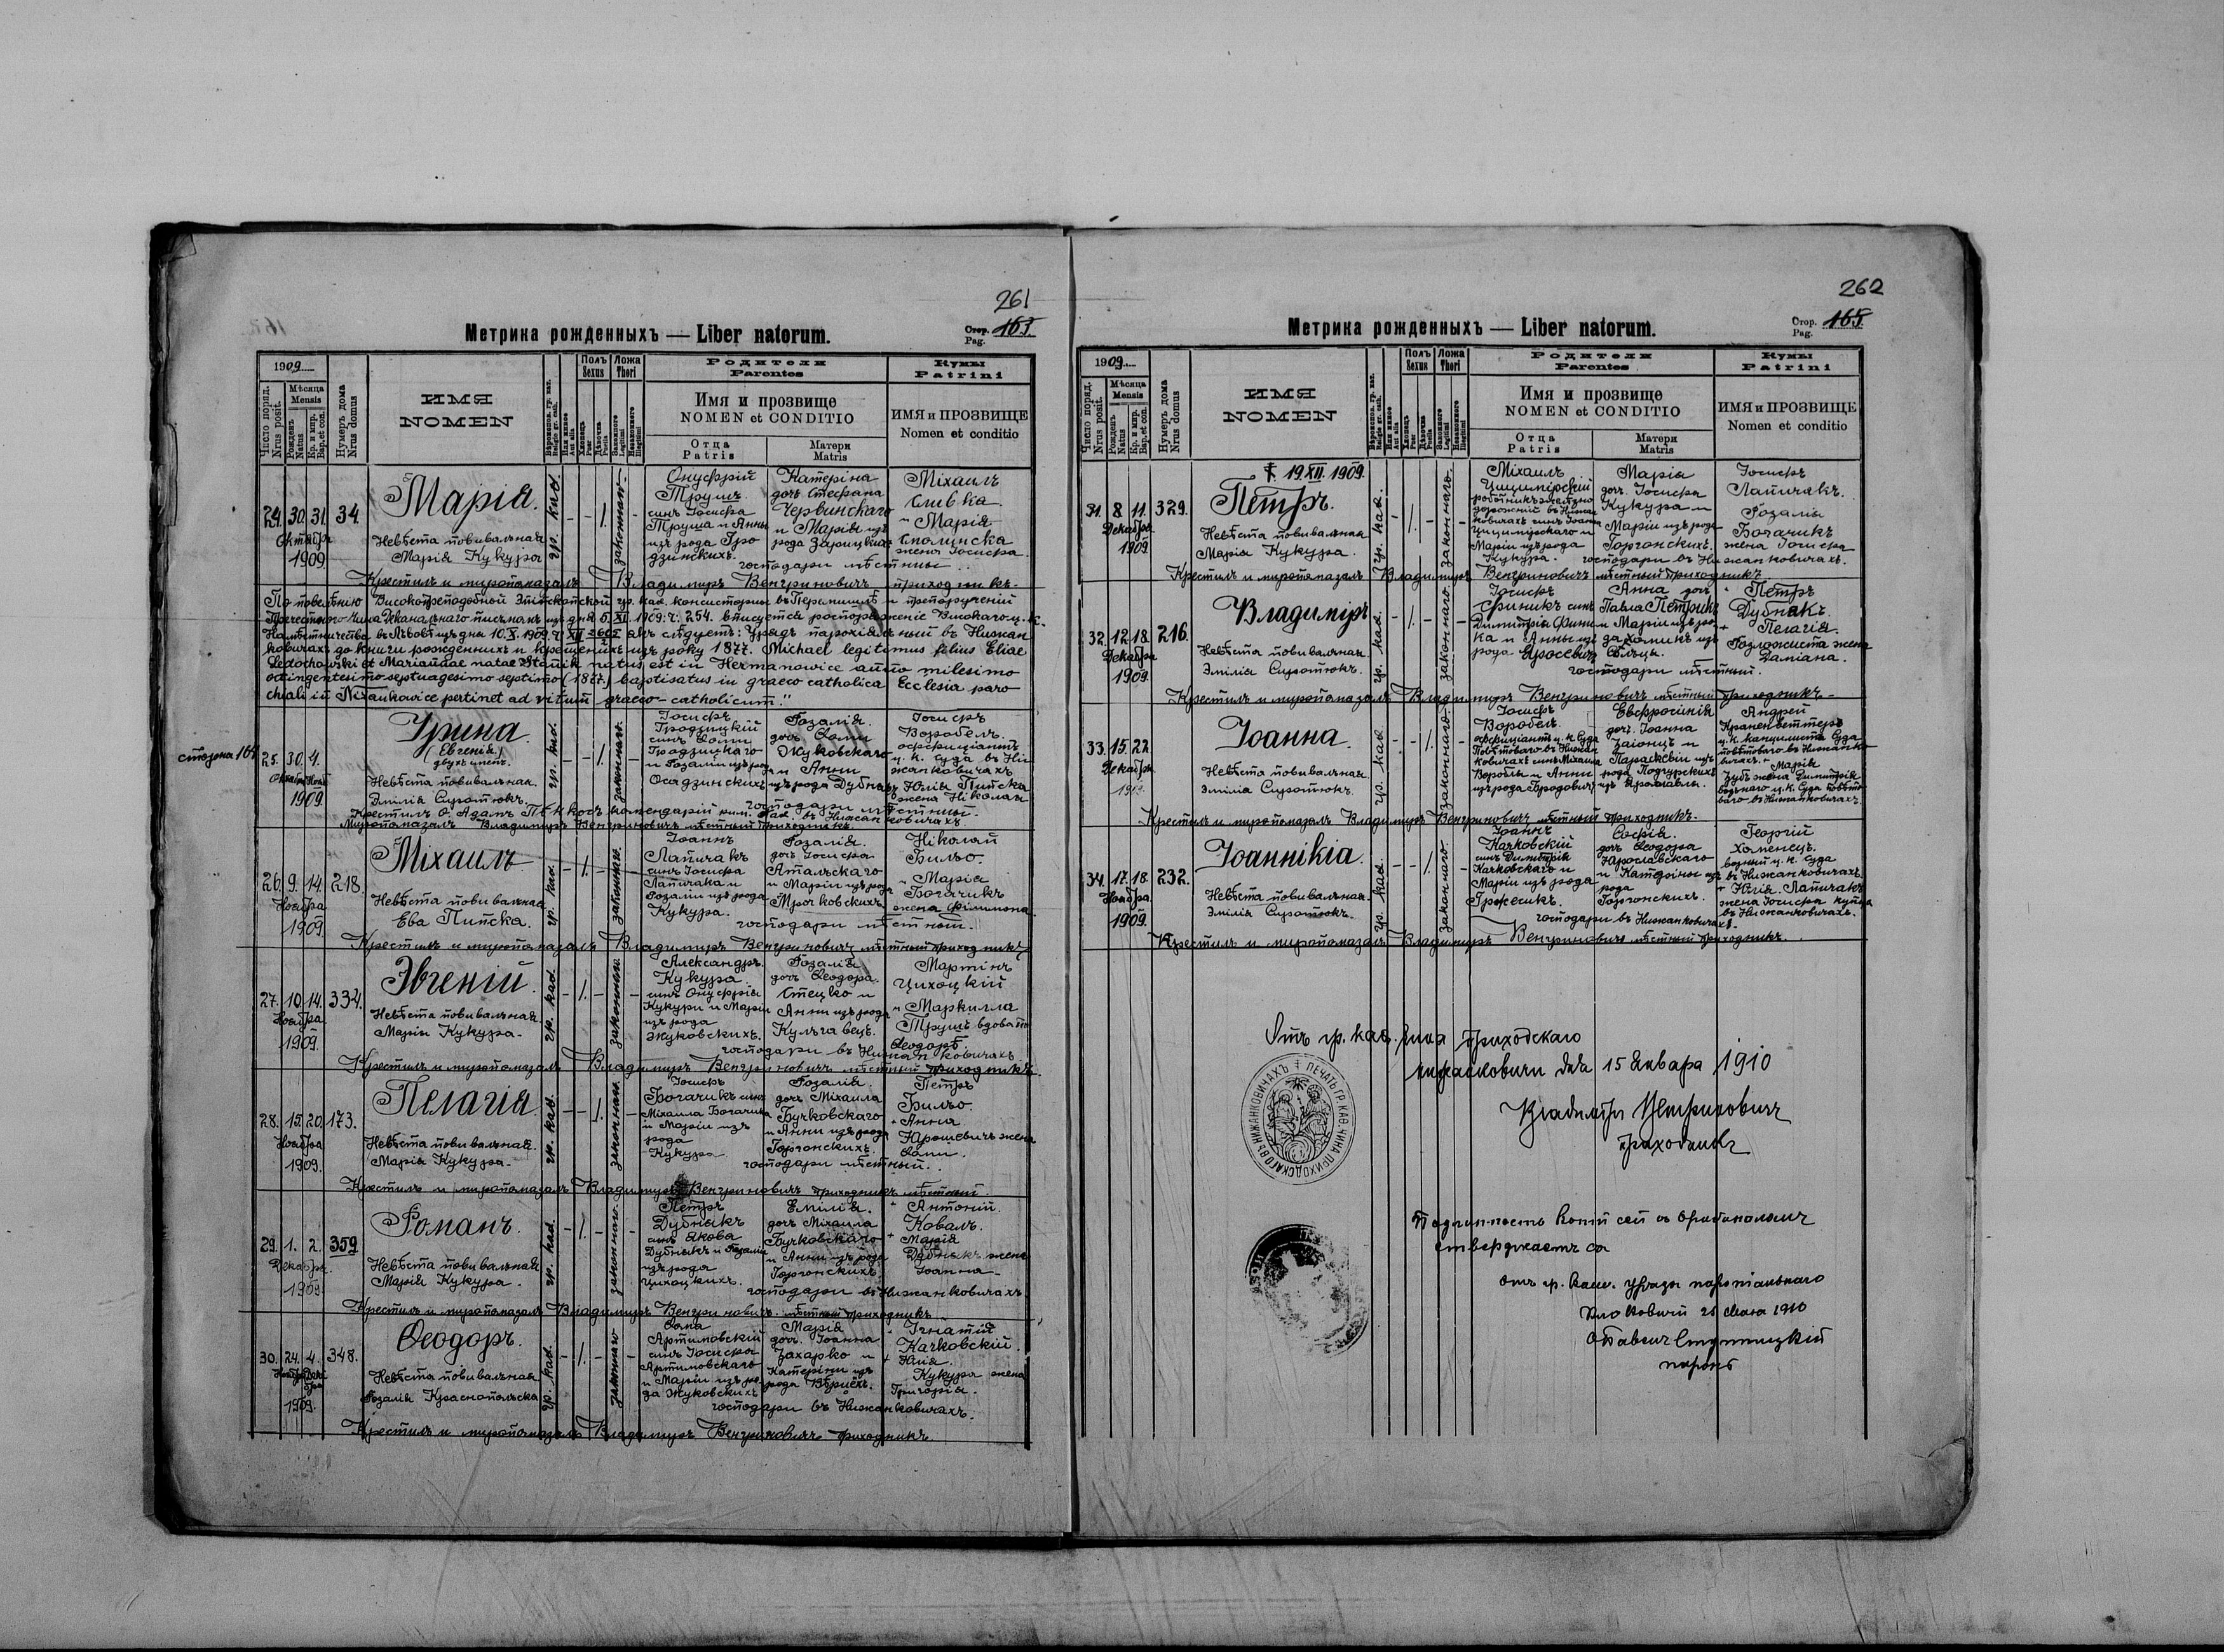 261
Метрика рожденныхъ — Liber natorum.
Стор. 163
Pag.
1909
Число поряд. Nrus posit.
Мѣсяца Mensis
Рожденъ Natus
Кр. и мѵр. Bap. et con.
Нумеръ дома Nrus domus
ИМЯ
NOMEN
Полъ Sexus
Ложа Thori
Родители
Parentes
Имя и прозвище
NOMEN et CONDITIO
Отца Patris
Матери Matris
Кумы
Patrini
ИМЯ и ПРОЗВИЩЕ
Nomen et conditio
24. 30. 31. 34.
Октября
1909
Марія.
Невѣста повивальная
Марія Кукура
гр. каѳ.
законнаго
Онуфрій
Трушъ
сынъ Іосифа
Труша и Анны
изъ рода Гро
дзинскихъ.
Катерина
дочь Стефана
Червинскаго
и Маріи изъ
рода Зарицкихъ
господари мѣстныи
Міхаилъ
Сливка
и Марія
Смолинска
жена Іосифа.
Крестилъ и миропомазалъ Владимиръ Венгриновичъ приходникъ.
По повелѣнію Високопреподобной Епископской гр. кат. консисторіи въ Перемишлѣ и препорученій
Пречестного Чина Деканального письмомъ изъ дня 6. XII. 1909. ч. 254. вписуется роспоряженіе Високого ц. к.
Намѣстничества въ Львовѣ изъ дня 10. X. 1909. ч. XII якъ слѣдуетъ: Урядъ парохіяльный въ Нижан
ковичахъ до книги рожденныхъ и крещеныхъ изъ року 1877. Michael legitimus filius Eliae
Ledochowski et Mariannae natae Stanik natus est in Hermanowice anno milesimo
octingentesimo septuagesimo septimo (1877.) baptisatus in graeco catholica Ecclesia paro
chiali in Nizankowice pertinet ad ritum graeco-catholicum."
25. 30. 4.
1909.
Ирина.
(Евгенія.)
двухъ именъ.
Невѣста повивальная
Эмілія Сиротюкъ.
гр. каѳ.
законнаго.
Іосифъ
Гродзицкій
сынъ Ѳомы
Гродзицкаго
и Розаліи изъ рода
Осадзинскихъ
Розалія.
дочь Ѳомы
Жуковскаго
и Анны
изъ рода Дубнякъ
господари мѣстныи.
Іосифъ
Воробель.
официіантъ
ц. к. суда въ Ни
жанковичахъ
Юлія Пипска
жена Николая
Крестилъ о. Адамъ
Миропомазалъ Владимиръ Венгриновичъ мѣстный приходникъ.
26. 9. 14. 218.
Ноября
1909
Міхаилъ
Невѣста повивальная
Ева Пипска.
гр. каѳ.
законнаго.
Іоаннъ
Лапичакъ
сынъ Іосифа
Лапичака и
Розаліи изъ рода
Кукура.
Розалія.
дочь Іосифа
Атальскаго
и Маріи изъ рода
Мрочковскихъ
господари мѣстныи.
Ніколай
Бильо.
и Марія
Богачикъ
жена Філимона.
Крестилъ и миропомазалъ Владимиръ Венгриновичъ мѣстный приходникъ
27. 10. 14. 334.
Ноября
1909.
Эвгеній.
Невѣста повивальная
Марія Кукура.
гр. каѳ.
законнаго.
Александръ
Кукура
сынъ Онуфрія
Кукури и Маріи
изъ рода
Жуковскихъ.
Розалія
дочь Ѳеодора
Стецко и
Анны изъ рода
Кульчавецъ.
господари въ Нижанковичахъ
Мартинъ
Цихоцкій
и Маркилла
Трушъ вдова по
Ѳеодорѣ.
Крестилъ и миропомазалъ Владимиръ Венгриновичъ мѣстный приходникъ.
28. 15. 20. 173.
Ноября
1909.
Пелагія.
Невѣста повивальная.
Марія Кукура.
гр. каѳ.
законная
Іосифъ
Богачикъ сынъ
Міхаила Богачика
и Маріи изъ
рода
Кукура
Розалія.
дочь Міхаила
Бучковскаго
и Анны изъ рода
Горгонскихъ.
господари мѣстный.
Петръ
Билъо.
+ Анна
Ярошевичъ жена
Ѳомы.
Крестилъ и миропомазалъ Владимиръ Венгриновичъ приходникъ мѣстный.
29. 1. 2. 359
Декабря.
1909
Романъ.
Невѣста повивальная
Марія Кукура.
гр. каѳ.
законнаго.
Петръ
Дубнякъ
сынъ Якова
Дубнякъ и Розаліи
изъ рода
Цихоцкихъ.
Емілія.
дочь Міхаила
Бучковскаго
и Анны изъ рода
Горгонскихъ
господари въ Нижанковичахъ.
+ Антоній.
Коваль.
+ Марія
Дубнякъ жена
Іоанна
Крестилъ и миропомазалъ Владимиръ Венгриновичъ мѣстный приходникъ
30. 24. 4. 348.
1909.
Ѳеодоръ.
Невѣста повивальная
Розалія Краснопольска
гр. каѳ.
законнаго
Ѳома
Артимовскій
сынъ Іосифа
Артимовскаго
и Маріи изъ ро
да Жуковскихъ
Марія
дочь Іоанна
Захарко и
Катерины изъ
рода
господари въ Нижанковичахъ.
Ігнатій
Качковскій.
+ Юлія.
Кукура жена
Григорія.
Крестилъ и миропомазалъ Владимиръ Венгриновичъ приходникъ
262
Метрика рожденныхъ — Liber natorum.
Стор. 165
Pag.
1909
Число поряд. Nrus posit.
Мѣсяца Mensis
Рожденъ Natus
Кр. и мѵр. Bap. et con.
Нумеръ дома Nrus domus
ИМЯ
NOMEN
Полъ Sexus
Ложа Thori
Родители
Parentes
Имя и прозвище
NOMEN et CONDITIO
Отца Patris
Матери Matris
Кумы
Patrini
ИМЯ и ПРОЗВИЩЕ
Nomen et conditio
31. 8. 11. 329.
Декабря
1909
† 19.XII.1909.
Петръ.
Невѣста повивальная
Марія Кукура.
гр. каѳ.
законнаго.
Міхаилъ
Цицимірскій
роботникъ желѣзно
дорожній въ Нижан
ковичахъ сынъ Іоанна
Цицимірскаго и
Маріи изъ рода
Кукура.
Марія
дочь Іосифа
Кукура и
Маріи изъ рода
Горгонскихъ.
господари въ Нижанковичахъ.
Іосифъ
Лапичакъ.
Розалія
Богачикъ
жена Іосифа
Крестилъ и миропомазалъ Владимиръ Венгриновичъ мѣстный приходникъ
32. 12. 18. 216.
Декабря
1909
Владиміръ
Невѣста повивальная
Эмілія Сиротюкъ.
гр. каѳ.
законнаго.
Іосифъ
Финикъ сынъ
Димитрія Фини
ка и Анны изъ
рода Яросевичъ
Анна дочь
Павла Петрини
и Маріи изъ ро
да
господари мѣстный.
+ Петръ
Дубнякъ.
+ Пелагія.
жена
Даміана.
Крестилъ и миропомазалъ Владимиръ Венгриновичъ мѣстный приходникъ
33. 15. 22.
Декабря
Іоанна.
Невѣста повивальная
Эмілія Сиротюкъ.
гр. каѳ.
законнаго.
Іосифъ
Воробель.
официіантъ ц. к. Суда
Повѣтоваго въ Нижан
ковичахъ сынъ Міхаила
Воробля и Анны
изъ рода Бродовичъ
Евфросинія
дочь Іоанна
Заіонцъ и
Параскевіи изъ
рода Подгурскихъ
изъ Ярославля.
Андрей
ц. к. канцелиста Суда
повѣтоваго въ Нижанко
вичахъ.
+ Марія
Зубъ жена Димитрія
возного ц. к. Суда повѣто
ваго въ Нижанковичахъ
Крестилъ и миропомазалъ Владимиръ Венгриновичъ мѣстный приходникъ.
34. 17. 18. 232.
Ноября
1909.
Іоаннікіа.
Невѣста повивальная
Эмілія Сиротюкъ.
гр. каѳ.
законнаго.
Іоаннъ
Качковскій
сынъ Димитрія
Качковскаго и
Маріи изъ рода
Гржесикъ.
Софія.
дочь Ѳеодора
Ярославскаго
и Катерины изъ
рода
Горгонскихъ.
господари въ Нижанковичахъ.
Георгій
Хоменецъ.
возный ц. к. Суда
въ Нижанковичахъ.
+ Юлія Лапичакъ
жена Іосифа купца
въ Нижанковичахъ.
Крестилъ и миропомазалъ Владимиръ Венгриновичъ мѣстный приходникъ.
Отъ гр. каѳ. чина приходского
Нижанковичи дня 15 Января 1910
Владиміръ Венгриновичъ
приходникъ
ПЕЧАТЬ ГР. КАѲ. ЧИНА ПРИХОДСКАГО ВЪ НИЖАНКОВИЧАХЪ
Подлинность копіи сей съ оригиналомъ
стверджаетъ ся
отъ гр. каѳ. уряда парохіального
25 1910
парохъ
сторона 164